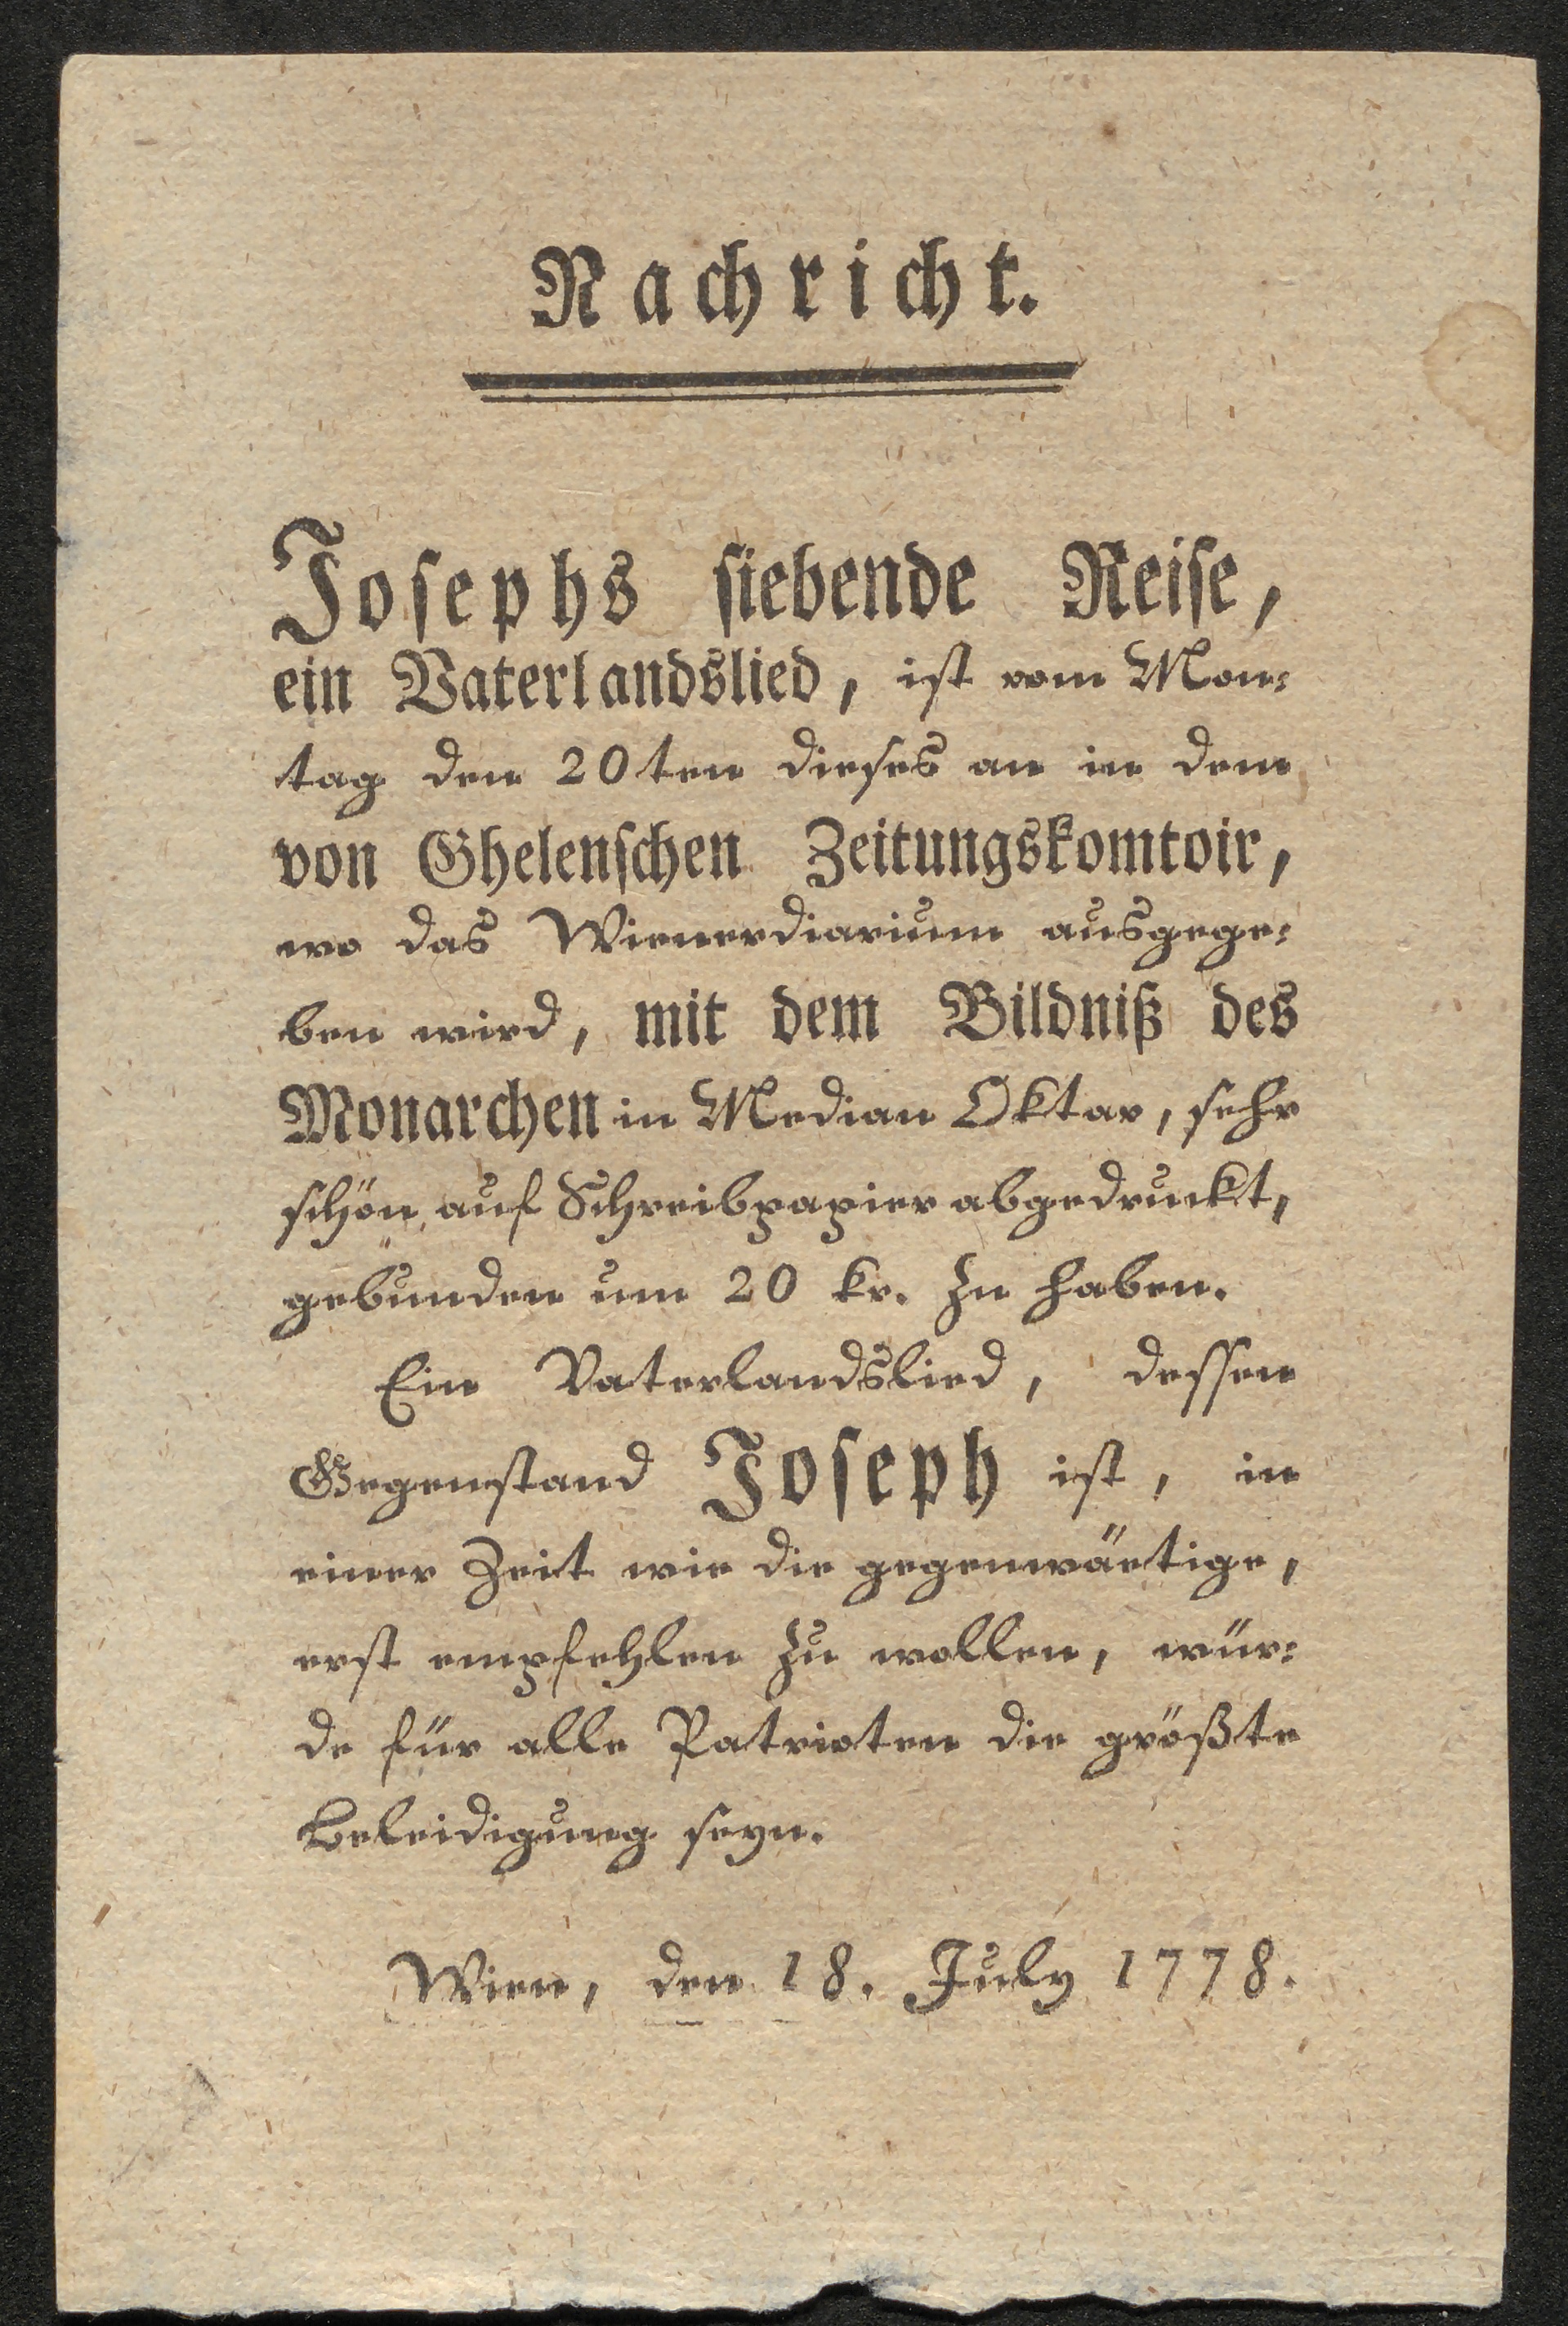 Nachricht.
Josephs siebende Reise,
ein Vaterlandslied, ist vom Mon⸗
tag den 20ten dieses an in dem
von Ghelenschen Zeitungskomtoir,
wo das Wienerdiarium ausgege⸗
ben wird, mit dem Bildniß des
Monarchen in Median Oktav, sehr
schön auf Schreibpapier abgedruckt,
gebunden um 20 kr. zu haben.
Ein Vaterlandslied, dessen
Gegenstand Joseph ist, in
einer Zeit wie die gegenwärtige,
erst empfehlen zu wollen, wür⸗
de für alle Patrioten die größte
Beleidigung seyn.
Wien, den 18. July 1778.